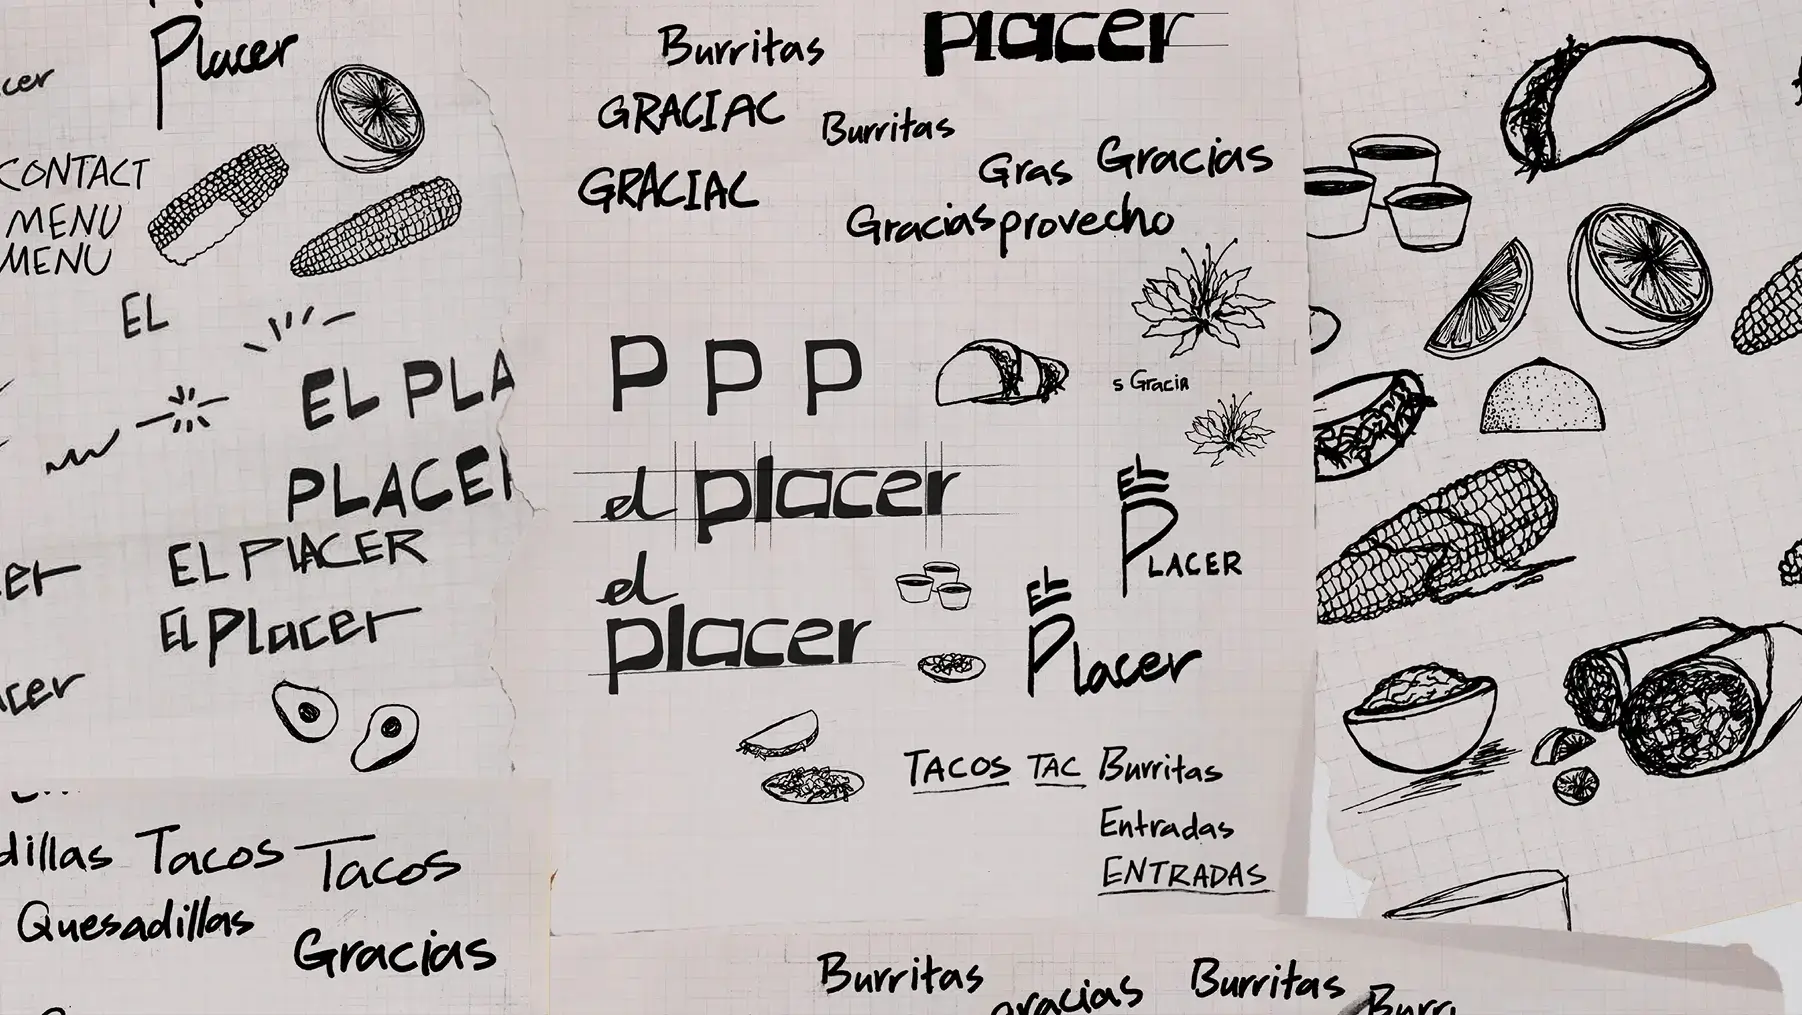 Placer
cer
CONTACT
MENU
MENU
EL
EL PLA
PLACER
EL PLACER
El Placer
er
acer
dillas Tacos Tacos
Quesadillas
Gracias
Burritas
placer
GRACIAC
Burritas
GRACIAC
Gras Gracias
Gracias provecho
P P P
s Gracia
el placer
EL
PLACER
el
placer
EL
Placer
TACOS TAC Burritas
Entradas
ENTRADAS
Burritas gracias Burritas Burri